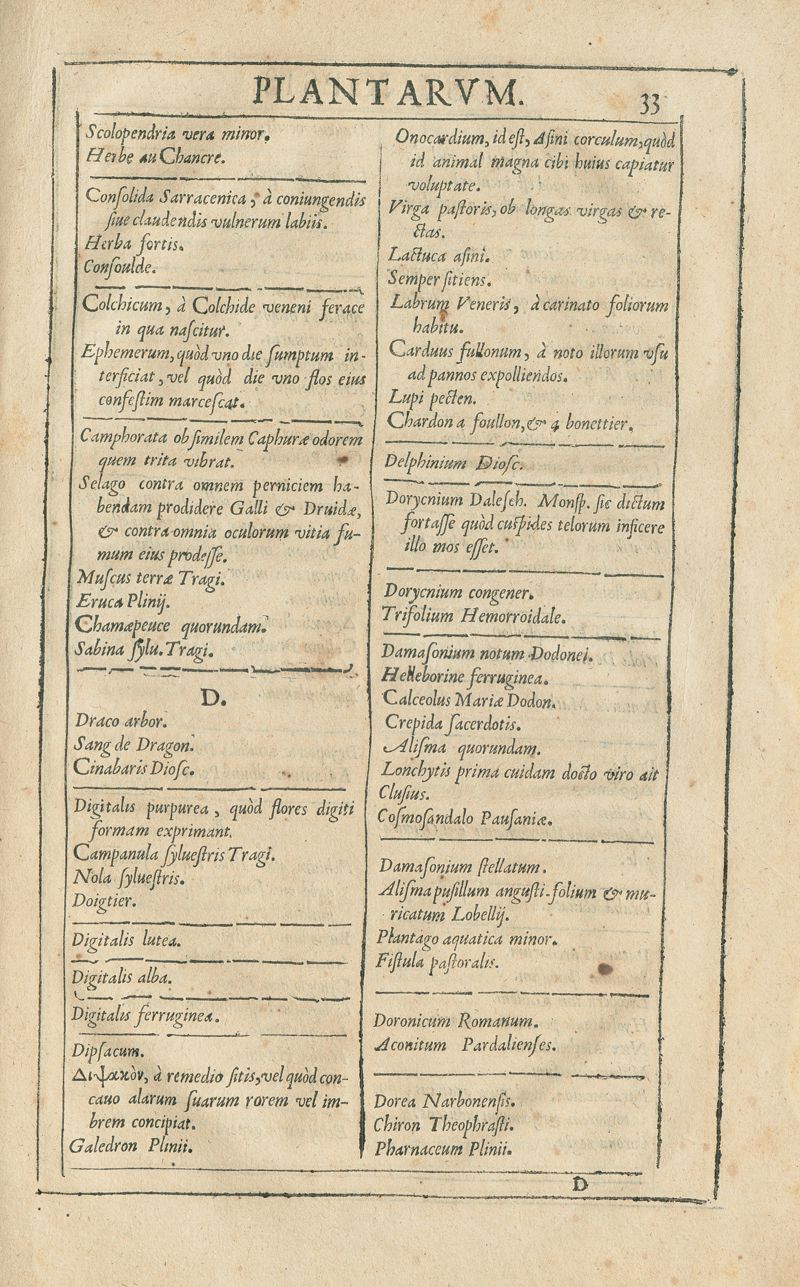 PLANTARVM.
33
Scolopendria vera minor.
Herbe au Chancre.
Conſolida Sarracenica, à coniungendis
ſiue claudendis vulnerum labiis.
Herba fortis.
Conſoulde.
Colchicum, à Colchide veneni ferace
in qua naſcitur.
Ephemerum, quòd vno die ſumptum in-
terficiat, vel quòd die vno flos eius
confeſtim marceſcat.
Camphorata ob ſimilem Caphuræ odorem
quem trita vibrat.
Selago contra omnem perniciem ha-
bendam prodidere Galli & Druidæ,
& contra omnia oculorum vitia fu-
mum eius prodeſſe.
Muſcus terræ Tragi.
Eruca Plinij.
Chamæpeuce quorundam.
Sabina ſylu. Tragi.
D.
Draco arbor.
Sang de Dragon.
Cinabaris Dioſc.
Digitalis purpurea, quòd flores digiti
formam exprimant.
Campanula ſylueſtris Tragi.
Nola ſylueſtris.
Doigtier.
Digitalis lutea.
Digitalis alba.
Digitalis ferruginea.
Dipſacum.
Διψακὸν, à remedio ſitis, vel quòd con-
cauo alarum ſuarum rorem vel im-
brem concipiat.
Galedron Plinii.
Onocardium, id eſt, Aſini corculum, quòd
id animal magna cibi huius capiatur
voluptate.
Virga paſtoris, ob longas virgas & re-
ctas.
Lactuca aſini.
Semper ſitiens.
Labrum Veneris, à carinato foliorum
habitu.
Carduus fullonum, à noto illorum vſu
ad pannos expolliendos.
Lupi pecten.
Chardon a foullon, & a bonettier.
Delphinium Dioſc.
Dorycnium Daleſch. Monſp. ſic dictum
fortaſſe quòd cuſpides telorum inficere
illo mos eſſet.
Dorycnium congener.
Trifolium Hemorroidale.
Damaſonium notum Dodonei.
Helleborine ferruginea.
Calceolus Mariæ Dodon.
Crepida ſacerdotis.
Aliſma quorundam.
Lonchytis prima cuidam docto viro ait
Cluſius.
Coſmoſandalo Pauſaniæ.
Damaſonium ſtellatum.
Aliſma puſillum anguſti-folium & mu-
ricatum Lobellij.
Plantago aquatica minor.
Fiſtula paſtoralis.
Doronicum Romanum.
Aconitum Pardalienſes.
Dorea Narbonenſis.
Chiron Theophraſti.
Pharnaceum Plinii.
D